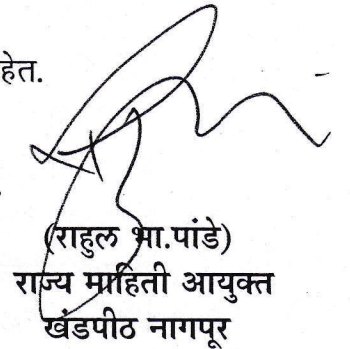 हेत.
(राहुल भा.पांडे)
राज्य माहिती आयुक्त
खंडपीठ नागपूर